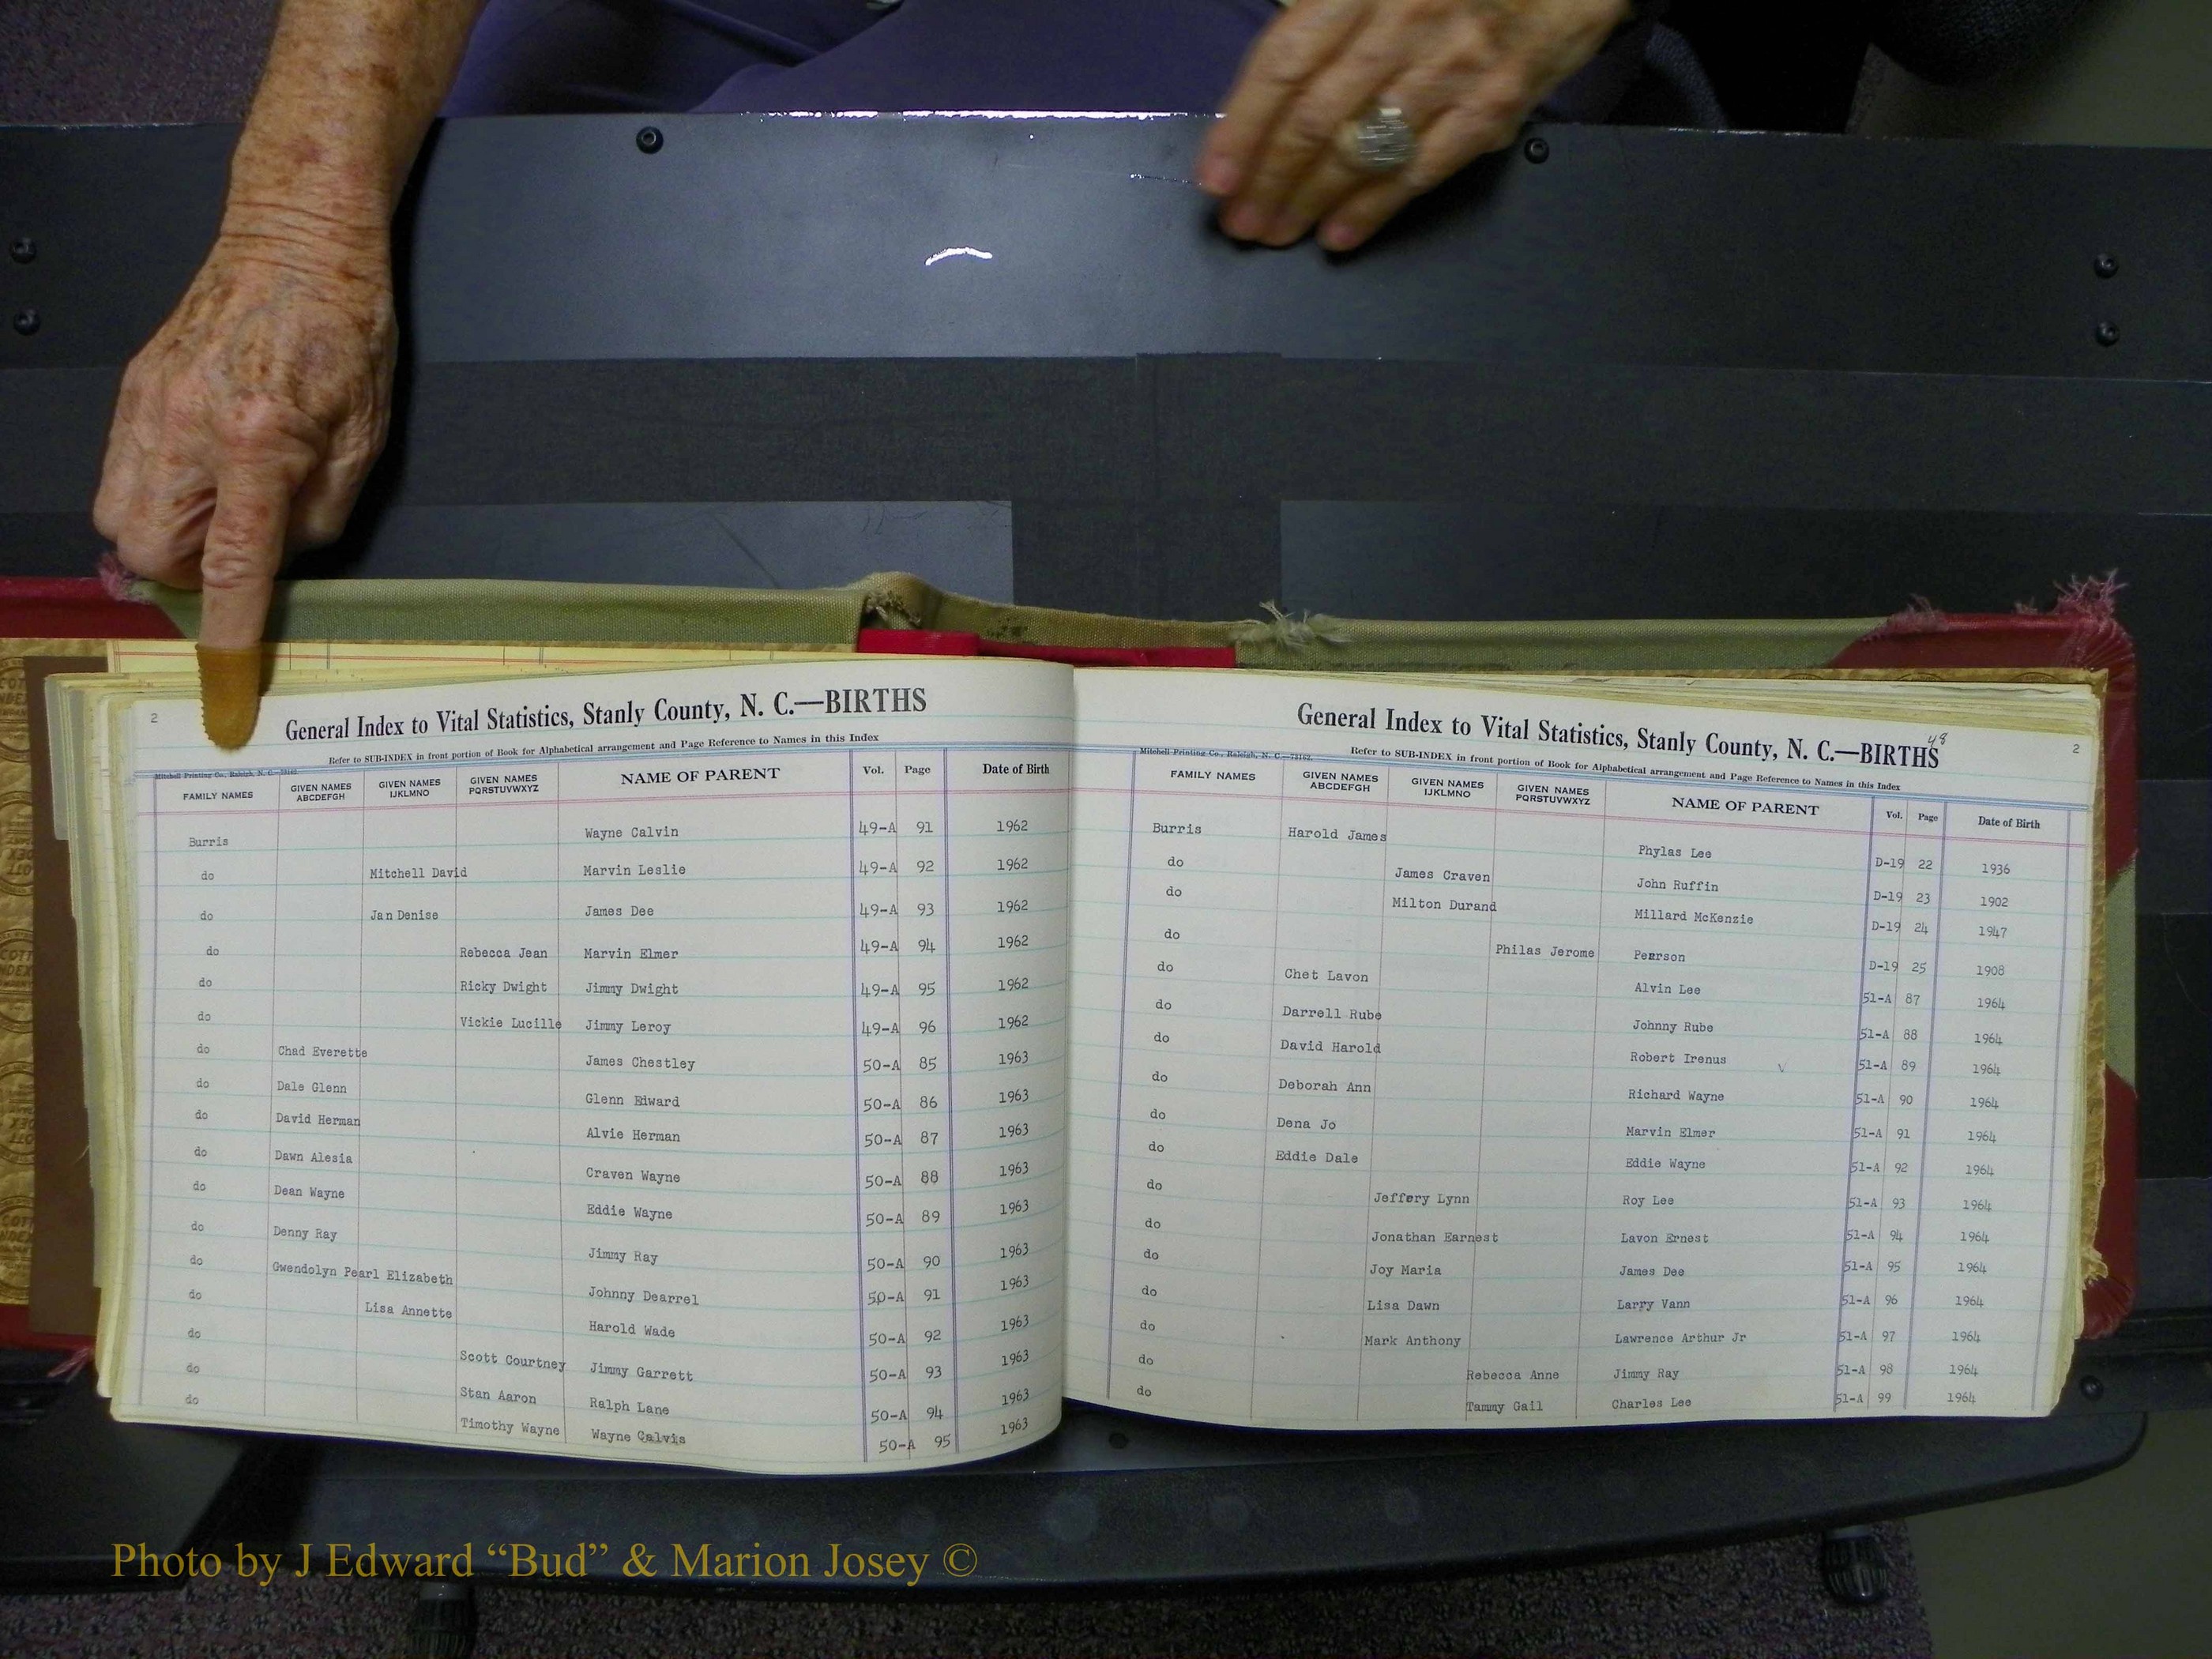 2
General Index to Vital Statistics, Stanly County, N. C.—BIRTHS
Refer to SUB-INDEX in front portion of Book for Alphabetical arrangement and Page Reference to Names in this Index
Mitchell Printing Co., Raleigh, N. C.—73162
FAMILY NAMES GIVEN NAMES ABCDEFGH GIVEN NAMES IJKLMNO GIVEN NAMES PQRSTUVWXYZ NAME OF PARENT Vol. Page Date of Birth
Burris Wayne Calvin 49-A 91 1962
do Mitchell David Marvin Leslie 49-A 92 1962
do Jan Denise James Dee 49-A 93 1962
do Rebecca Jean Marvin Elmer 49-A 94 1962
do Ricky Dwight Jimmy Dwight 49-A 95 1962
do Vickie Lucille Jimmy Leroy 49-A 96 1962
do Chad Everette James Chestley 50-A 85 1963
do Dale Glenn Glenn Edward 50-A 86 1963
do David Herman Alvie Herman 50-A 87 1963
do Dawn Alesia Craven Wayne 50-A 88 1963
do Dean Wayne Eddie Wayne 50-A 89 1963
do Denny Ray Jimmy Ray 50-A 90 1963
do Gwendolyn Pearl Elizabeth Johnny Dearrel 50-A 91 1963
do Lisa Annette Harold Wade 50-A 92 1963
do Scott Courtney Jimmy Garrett 50-A 93 1963
do Stan Aaron Ralph Lane 50-A 94 1963
do Timothy Wayne Wayne Calvis 50-A 95 1963
General Index to Vital Statistics, Stanly County, N. C.—BIRTHS
48
2
Refer to SUB-INDEX in front portion of Book for Alphabetical arrangement and Page Reference to Names in this Index
Mitchell Printing Co., Raleigh, N. C.—73162
FAMILY NAMES GIVEN NAMES ABCDEFGH GIVEN NAMES IJKLMNO GIVEN NAMES PQRSTUVWXYZ NAME OF PARENT Vol. Page Date of Birth
Burris Harold James Phylas Lee D-19 22 1936
do James Craven John Ruffin D-19 23 1902
do Milton Durand Millard McKenzie D-19 24 1947
do Philas Jerome Pearson D-19 25 1908
do Chet Lavon Alvin Lee 51-A 87 1964
do Darrell Rube Johnny Rube 51-A 88 1964
do David Harold Robert Irenus 51-A 89 1964
do Deborah Ann Richard Wayne 51-A 90 1964
do Dena Jo Marvin Elmer 51-A 91 1964
do Eddie Dale Eddie Wayne 51-A 92 1964
do Jeffery Lynn Roy Lee 51-A 93 1964
do Jonathan Earnest Lavon Ernest 51-A 94 1964
do Joy Maria James Dee 51-A 95 1964
do Lisa Dawn Larry Vann 51-A 96 1964
do Mark Anthony Lawrence Arthur Jr 51-A 97 1964
do Rebecca Anne Jimmy Ray 51-A 98 1964
do Tammy Gail Charles Lee 51-A 99 1964
Photo by J Edward “Bud” & Marion Josey ©